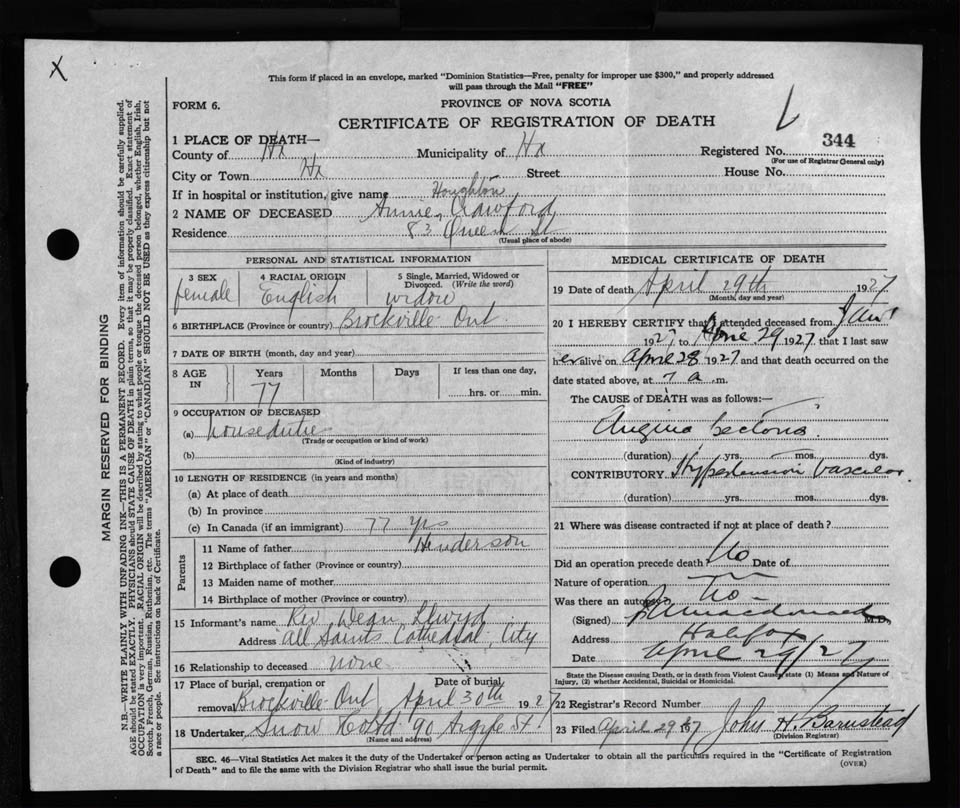 X
This form if placed in an envelope, marked "Dominion Statistics—Free, penalty for improper use $300," and properly addressed
will pass through the Mail "FREE"
FORM 6.
PROVINCE OF NOVA SCOTIA
CERTIFICATE OF REGISTRATION OF DEATH
1 PLACE OF DEATH—
County of Hx Municipality of Hx Registered No. 344
(For use of Registrar General only)
City or Town Hx Street House No.
If in hospital or institution, give name Houghton
2 NAME OF DECEASED Annie Crawford
Residence 83 Queen St
(Usual place of abode)
PERSONAL AND STATISTICAL INFORMATION
3 SEX 4 RACIAL ORIGIN 5 Single, Married, Widowed or Divorced. (Write the word)
female English widow
6 BIRTHPLACE (Province or country) Brockville Ont.
7 DATE OF BIRTH (month, day and year)
8 AGE IN Years Months Days If less than one day,
77 hrs. or min.
9 OCCUPATION OF DECEASED
(a) houseduties
(Trade or occupation or kind of work)
(b)
(Kind of industry)
10 LENGTH OF RESIDENCE (in years and months)
(a) At place of death
(b) In province
(c) In Canada (if an immigrant) 77 yrs
Parents
11 Name of father Henderson
12 Birthplace of father (Province or country)
13 Maiden name of mother
14 Birthplace of mother (Province or country)
15 Informant's name Rev Dean Llwyd
Address All Saints Cathedral, City
16 Relationship to deceased none
17 Place of burial, cremation or removal Date of burial
Brockville Ont April 30th 1927
18 Undertaker Snow Co Ltd 90 Argyle St.
(Name and address)
MEDICAL CERTIFICATE OF DEATH
19 Date of death April 29th 1927
(Month, day and year)
20 I HEREBY CERTIFY that I attended deceased from Jan
1927, to April 29 1927, that I last saw
her alive on April 28 1927 and that death occurred on the
date stated above, at 7 a.m.
The CAUSE of DEATH was as follows:—
Angina Pectoris
(duration) yrs. mos. dys.
CONTRIBUTORY Hypertension vascular
(duration) yrs. mos. dys.
21 Where was disease contracted if not at place of death?
Did an operation precede death No Date of
Nature of operation
Was there an autopsy No
(Signed) Macdonald M.D.
Address Halifax
Date April 29/27
State the Disease causing Death, or in death from Violent Causes, state (1) Means and Nature of
Injury, (2) whether Accidental, Suicidal or Homicidal.
22 Registrar's Record Number
23 Filed April 29 1927 John H. Barnstead
(Division Registrar)
SEC. 46—Vital Statistics Act makes it the duty of the Undertaker or person acting as Undertaker to obtain all the particulars required in the "Certificate of Registration
of Death" and to file the same with the Division Registrar who shall issue the burial permit.
(OVER)
MARGIN RESERVED FOR BINDING
N.B.—WRITE PLAINLY WITH UNFADING INK—THIS IS A PERMANENT RECORD. Every item of information should be carefully supplied.
AGE should be stated EXACTLY. PHYSICIANS should STATE CAUSE OF DEATH in plain terms, so that it may be properly classified. Exact statement of
OCCUPATION is very important. RACIAL ORIGIN will be described by stating to what people or tongue the deceased person belonged, whether English, Irish,
Scotch, French, German, Russian, Ruthenian, etc. The terms "AMERICAN" or "CANADIAN" SHOULD NOT BE USED as they express citizenship but not
a race or people. See instructions on back of Certificate.